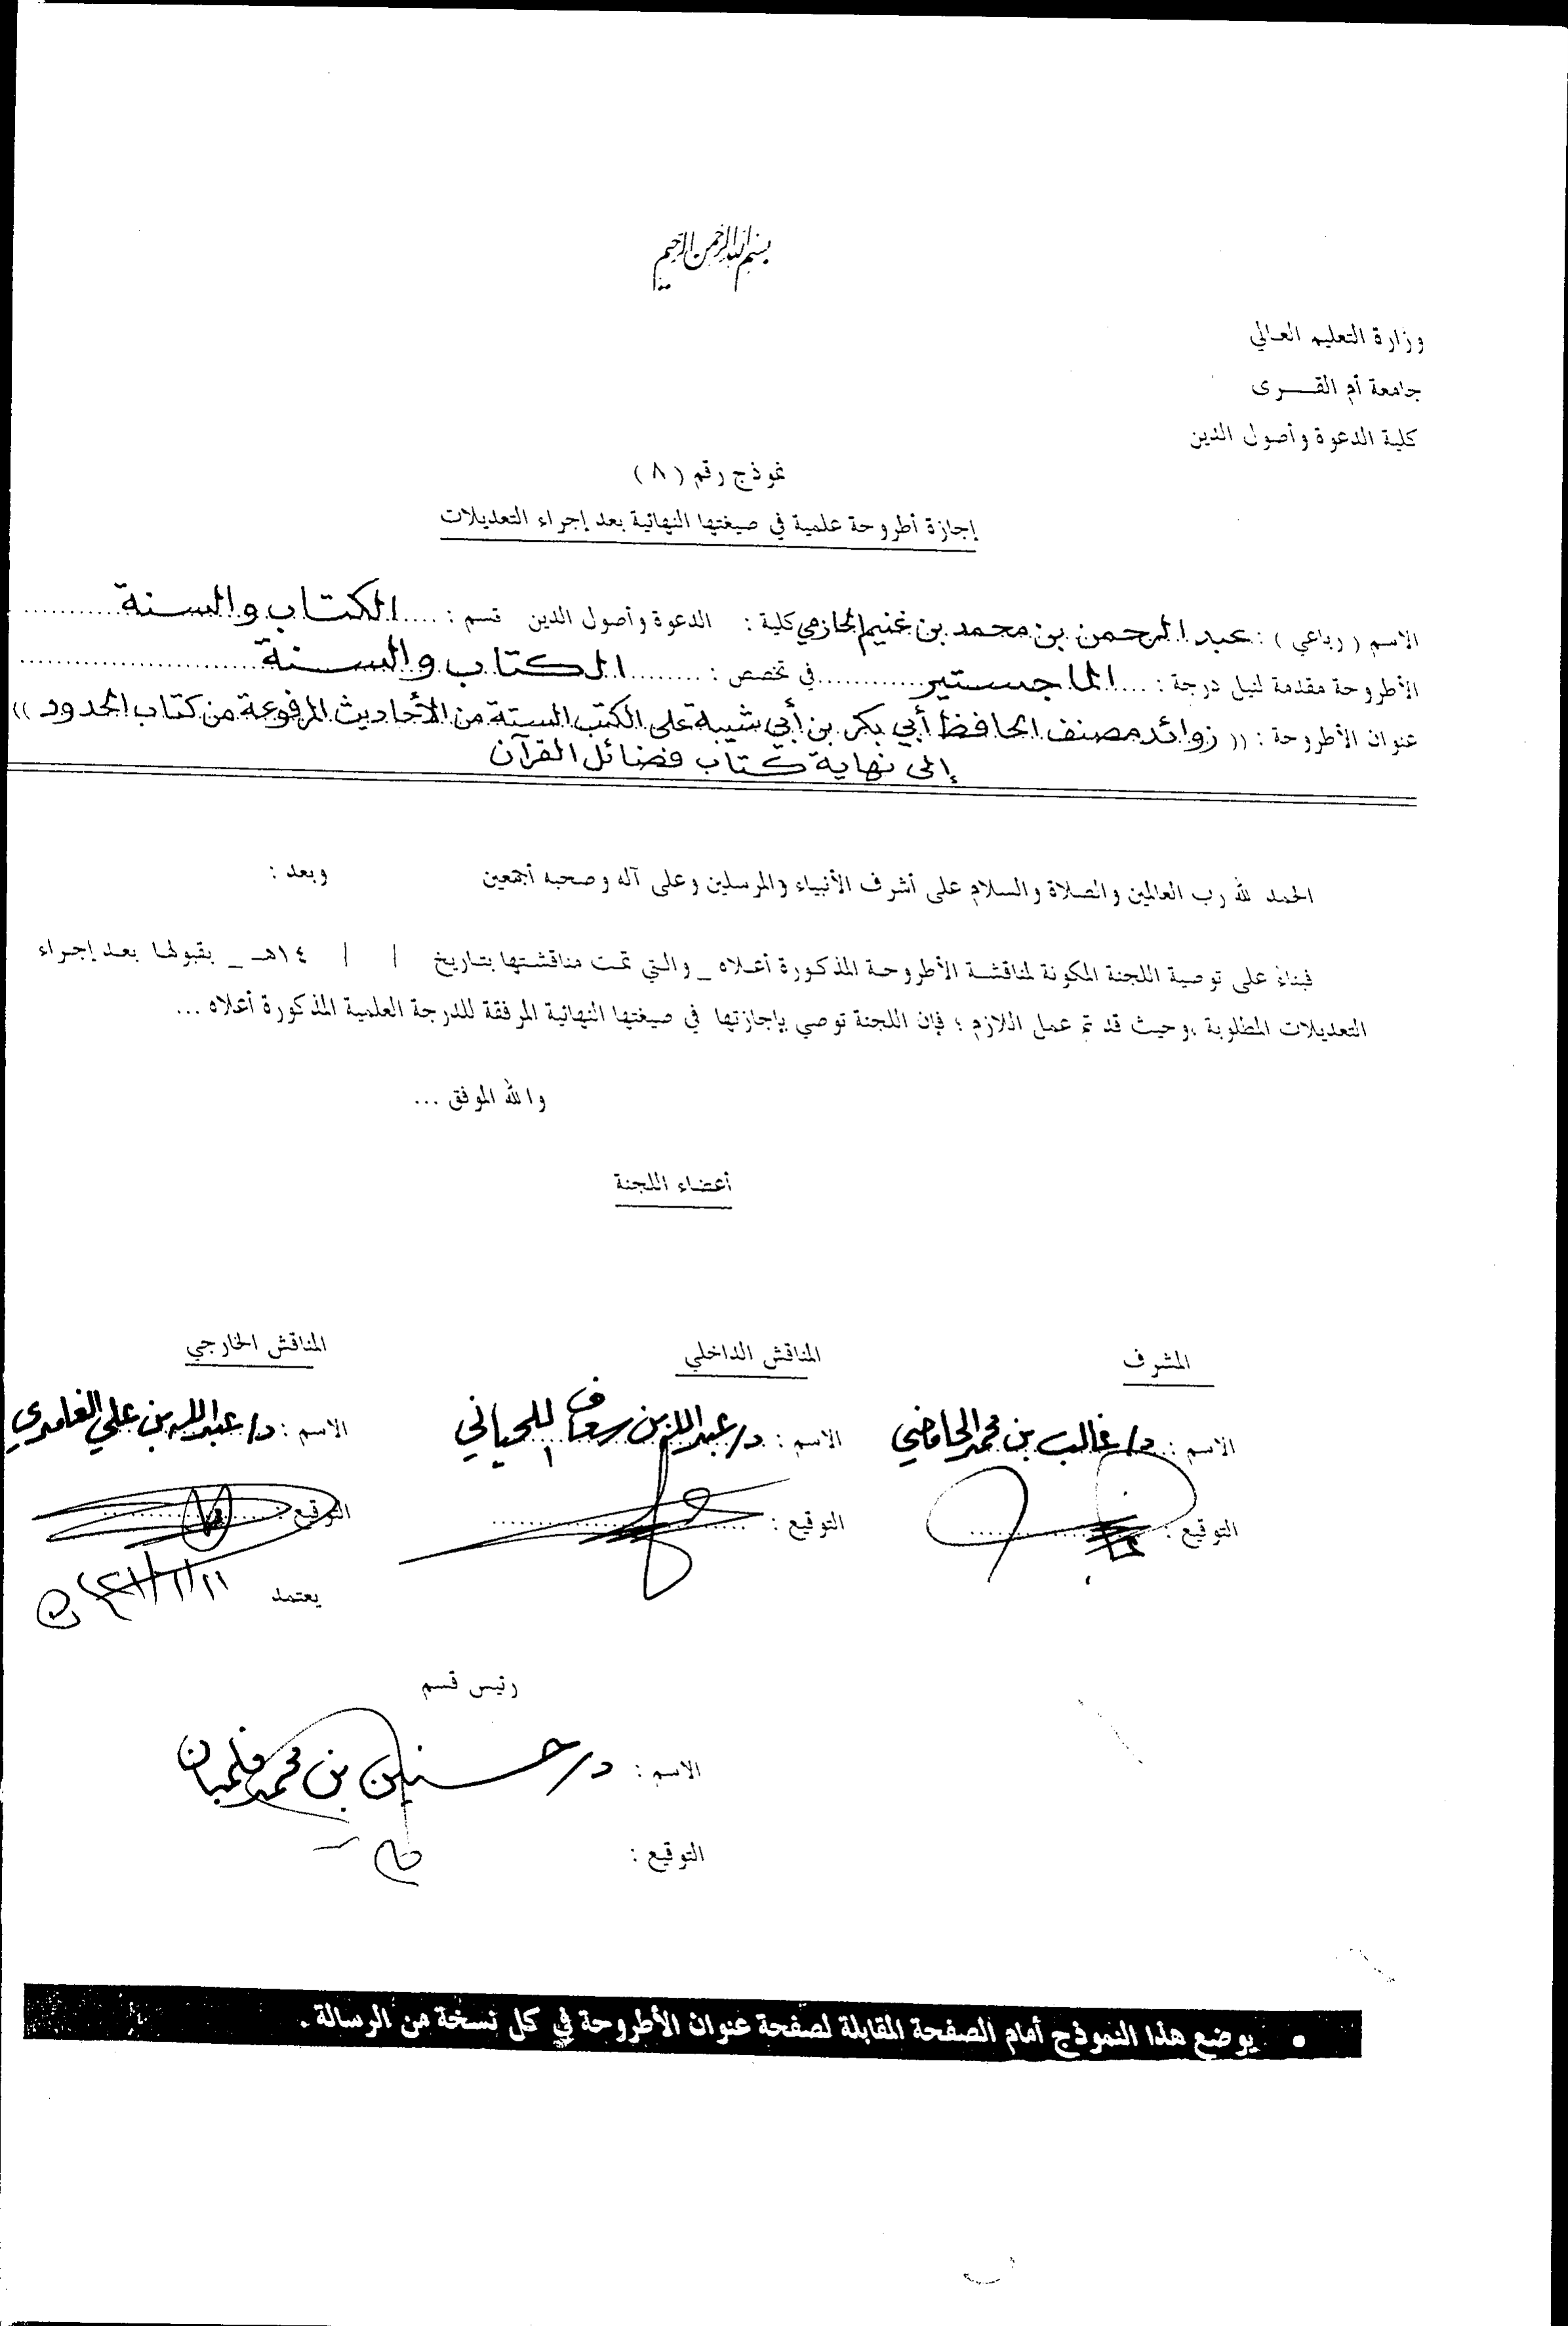 بسم الله الرحمن الرحيم
وزارة التعليم العالي
جامعة أم القــــرى
كلية الدعوة وأصول الدين
نموذج رقم ( ٨ )
إجازة أطروحة علمية في صيغتها النهائية بعد إجراء التعديلات
الاسم ( رباعي ) : عبد الرحمن بن محمد بن غنيم الحازمي كلية : الدعوة وأصول الدين قسم : .... الكتاب والسنة ..........
الأطروحة مقدمة لنيل درجة : ... الماجستير ........... في تخصص : ........ الكتاب والسنة ..........................
عنوان الأطروحة : (( زوائد مصنف الحافظ أبي بكر بن أبي شيبة على الكتب الستة من الأحاديث المرفوعة من كتاب الحدود ))
إلى نهاية كتاب فضائل القرآن
الحمد لله رب العالمين والصلاة والسلام على أشرف الأنبياء والمرسلين وعلى آله وصحبه أجمعين وبعد :
فبناءً على توصية اللجنة المكونة لمناقشة الأطروحة المذكورة أعلاه _ والتي تمت مناقشتها بتاريخ / / ١٤هـ _ بقبولها بعد إجراء
التعديلات المطلوبة ،وحيث قد تم عمل اللازم ؛ فإن اللجنة توصي بإجازتها في صيغتها النهائية المرفقة للدرجة العلمية المذكورة أعلاه ...
والله الموفق ...
أعضاء اللجنة
المشرف المناقش الداخلي المناقش الخارجي
الاسم : د/ غالب بن محمد الحامضي الاسم : د/ عبدالله بن سعاف اللحياني الاسم : د/ عبدالله بن علي الغامدي
التوقيع : التوقيع : التوقيع :
يعتمد
رئيس قسم
الاسم : د/ حسنين بن محمد فلمبان
التوقيع :
• يوضع هذا النموذج أمام الصفحة المقابلة لصفحة عنوان الأطروحة في كل نسخة من الرسالة .